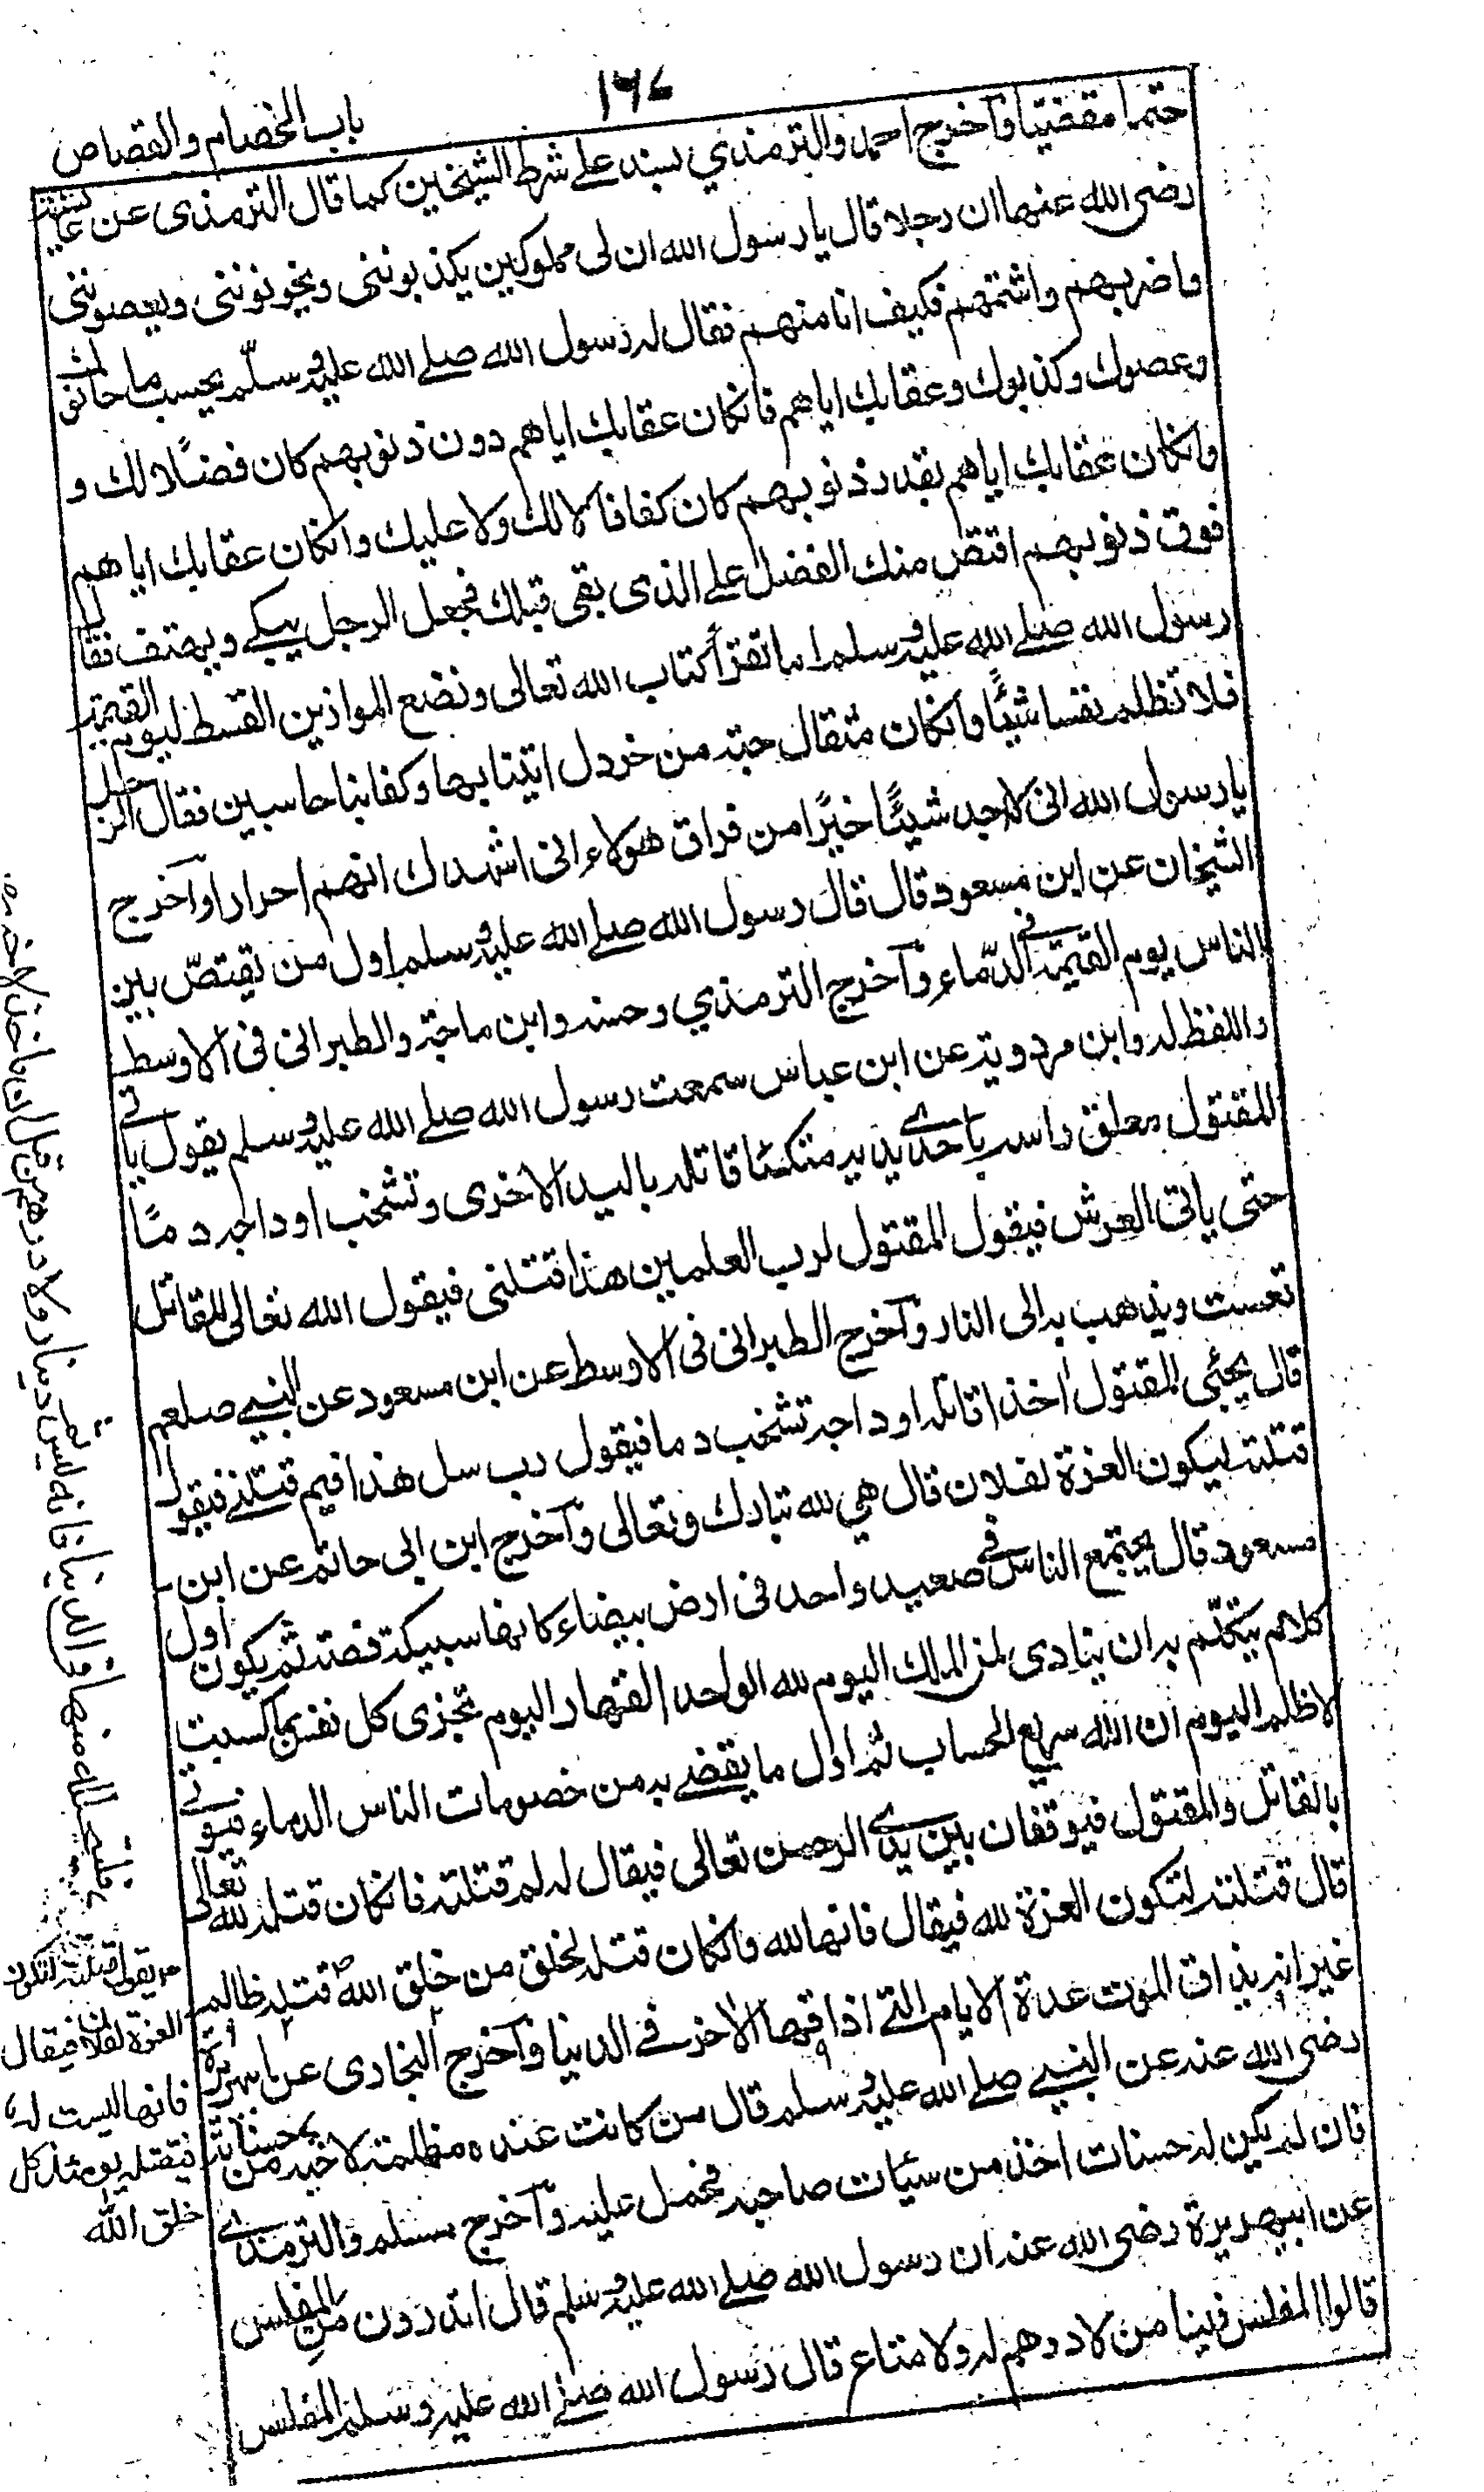 ١٦٧
باب الخصام والقصاص
حتما مقضيا وآخرج احمد والترمذي بسند على شرط الشيخين كما قال الترمذى عن عايشة
رضى الله عنها ان رجلا قال يا رسول الله ان لى مملوكين يكذبوننى ويخونوننى ويعصوننى
واضربهم واشتمهم فكيف انا منهم فقال له رسول الله صلے الله عليه وسلّم يحسب ما خانوك
وعصوك وكذبوك وعقابك اياهم فانكان عقابك اياهم دون ذنوبهم كان فضلًا لك و
فانكان عقابك اياهم بقدر ذنوبهم كان كفافا لا لك ولا عليك وانكان عقابك اياهم
فوق ذنوبهم اقتص منك الفضل على الذى بقى قبلك فجعل الرجل يبكے ويهتف فقال
رسول الله صلے الله عليه وسلم اما تقرأ كتاب الله تعالى ونضع الموازين القسط ليوم القيمة
فلا تظلم نفسا شيئًا وانكان مثقال حبة من خردل اتينا بها وكفا بنا حاسبين فقال الرجل
يا رسول الله انى لا اجد شيئًا خيرًا من فراق هولاء انى اشهدك انهم احرار اوآخرج
الشيخان عن ابن مسعود قال قال رسول الله صلے الله عليه وسلم اول من يقتصّ بين
الناس يوم القيمة فى الدّماء وآخرج الترمذي وحسنه وابن ماجة والطبرانى فى الاوسط
واللفظ له وابن مردوية عن ابن عباس سمعت رسول الله صلے الله عليه وسلم يقول ياتے
المقتول معلق راسه باحدے يديه متكئا قاتله باليد الاخرى وتشخب اوداجه دمًا
حتى ياتى العرش فيقول المقتول لرب العلمين هذا قتلنى فيقول الله تعالى للقاتل
تعست ويذهب به الى النار وآخرج الطبرانى فى الاوسط عن ابن مسعود عن النبے صلعم
قال يجئى المقتول اخذا قاتله اوداجه تشخب دما فيقول رب سل هذا فيم قتلنے فيقول
قتلته ليكون العزة لفلان قال هي لله تبارك وتعالى وآخرج ابن ابى حاتم عن ابن
مسعود قال يجتمع الناس فے صعيد واحد فى ارض بيضاء كانها سبيكة فضة ثم يكون اول
كلام يتكلّم به ان ينادى لمن الملك اليوم لله الواحد القهار اليوم تجزى كل نفس بما كسبت
لا ظلم اليوم ان الله سريع الحساب ثم اول ما يقضے به من خصومات الناس الدماء فيوتے
بالقاتل والمقتول فيوقفان بين يدے الرحمن تعالى فيقال له لم قتلته فانكان قتله لله تعالى
قال قتلته لتكون العزة لله فيقال فانها لله وانكان قتله لخلق من خلق الله قتله ظالم
غير انه يذاق الموت عدة الايام التے اذاقها الاخر فے الدنيا وآخرج البخارى عن ابى هريرة
رضى الله عنه عن النبے صلے الله عليه وسلم قال من كانت عنده مظلمة لاخيه من
فان لم يكن له حسنات اخذ من سيأت صاحبه فحمل عليه وآخرج مسلم والترمذے
عن ابى هريرة رضى الله عنه ان رسول الله صلے الله عليه وسلم قال اتدرون من المفلس
قالوا المفلس فينا من لا درهم له ولا متاع قال رسول الله صلے الله عليه وسلم المفلس
فليتحلله منها فى الدنيا فانه ليس دينار ولا درهم من قبل ان ياخذ لاخيه
يقول قتلته لتكون
العزة لفلان فيقال
فانها ليست له
فيقتله يومئذ كل
خلق الله